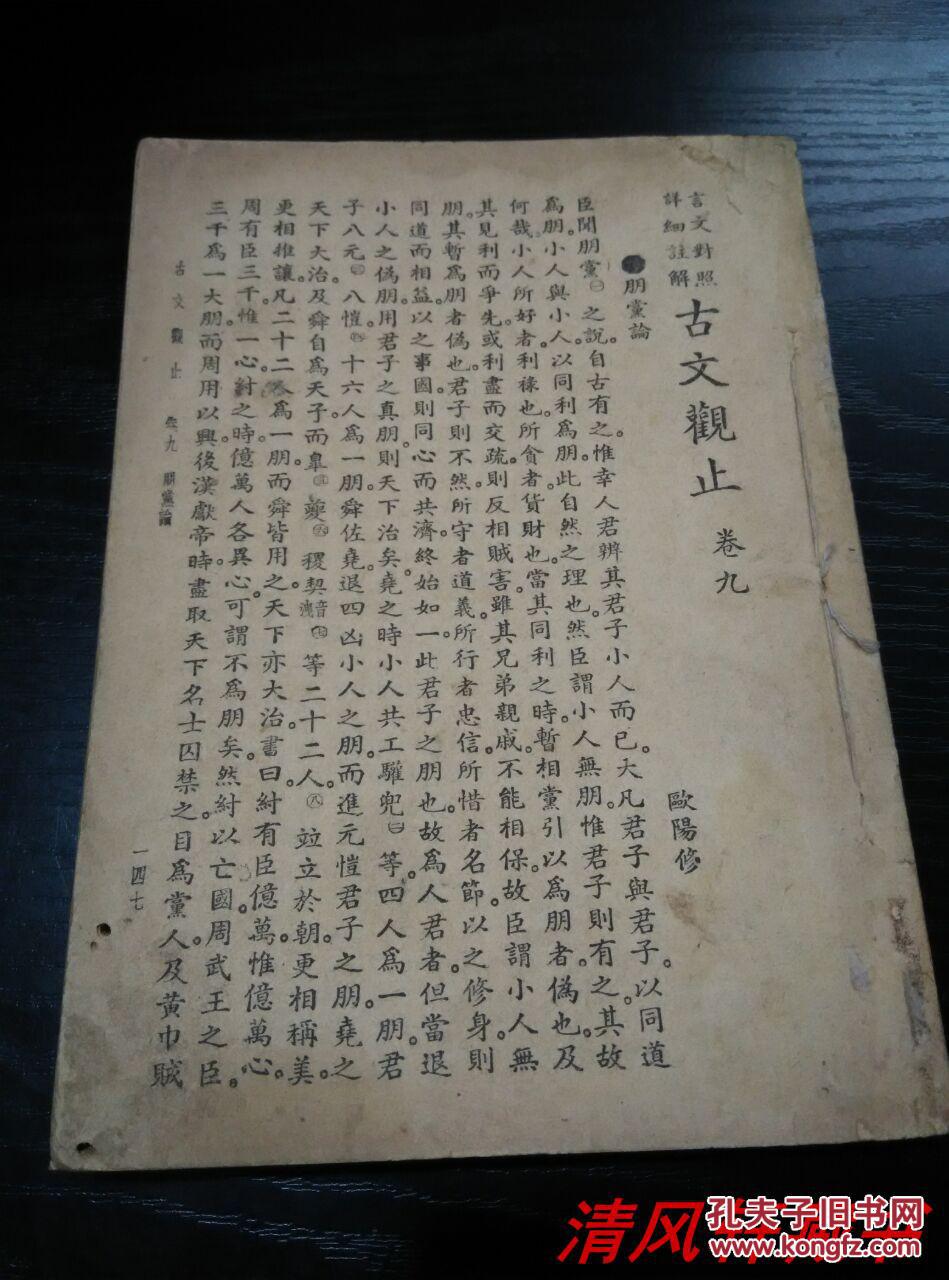 言文對照
詳細註解
古文觀止
卷九
朋黨論
歐陽修
臣聞朋黨㊀之說。自古有之。惟幸人君辨其君子小人而已。大凡君子與君子。以同道
爲朋。小人與小人。以同利爲朋。此自然之理也。然臣謂小人無朋。惟君子則有之。其故
何哉。小人所好者。利祿也。所貪者。貨財也。當其同利之時。暫相黨引以爲朋者。僞也。及
其見利而爭先。或利盡而交疏。則反相賊害。雖其兄弟親戚。不能相保。故臣謂小人無
朋。其暫爲朋者。僞也。君子則不然。所守者道義。所行者忠信。所惜者名節。以之修身。則
同道而相益。以之事國。則同心而共濟。終始如一。此君子之朋也。故爲人君者。但當退
小人之僞朋。用君子之真朋。則天下治矣。堯之時。小人共工驩兜㊁等。四人爲一朋。君
子八元㊂八愷㊃十六人爲一朋。舜佐堯。退四凶小人之朋。而進元愷君子之朋。堯之
天下大治。及舜自爲天子。而皐㊄夔㊅稷契音洩㊆等二十二人。㊇竝立於朝。更相稱美。
更相推讓。凡二十二人爲一朋。而舜皆用之。天下亦大治。書曰。紂有臣億萬。惟億萬心。
周有臣三千。惟一心。紂之時。億萬人各異心。可謂不爲朋矣。然紂以亡國。周武王之臣。
三千爲一大朋。而周用以興。後漢獻帝時。盡取天下名士囚禁之。目爲黨人。及黃巾賊
古文觀止 卷九 朋黨論
一四七
清风
孔夫子旧书网
www.kongfz.com